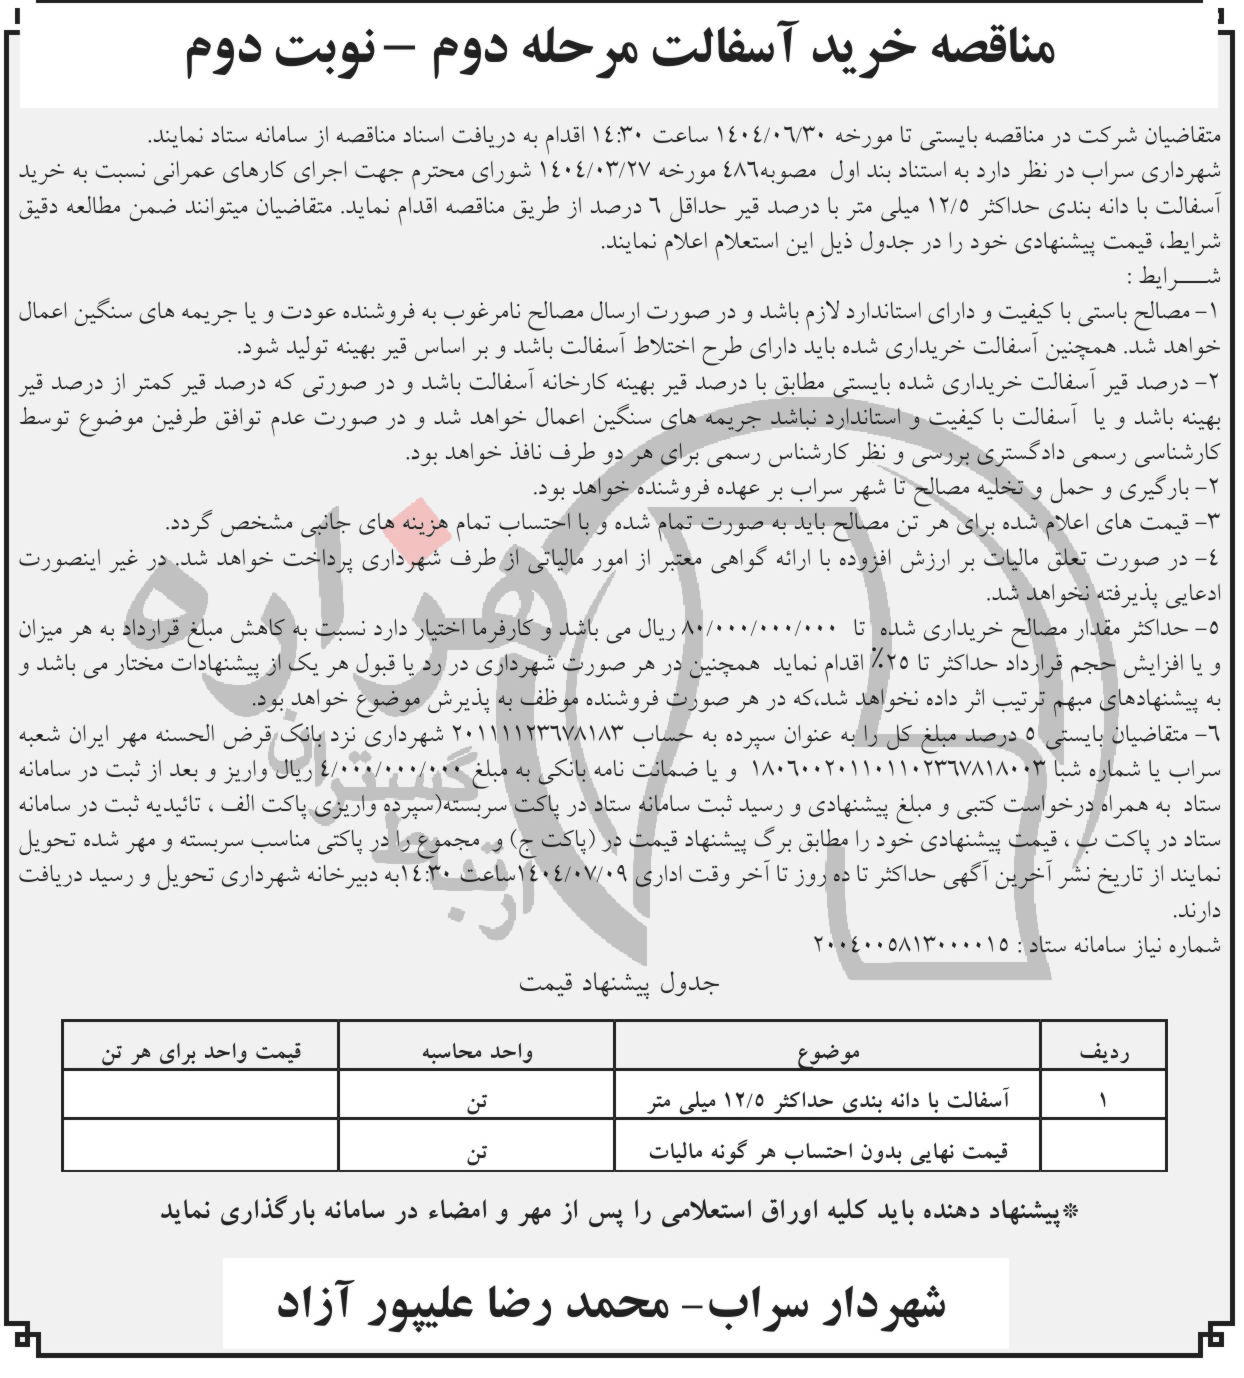 مناقصه خرید آسفالت مرحله دوم – نوبت دوم
متقاضیان شرکت در مناقصه بایستی تا مورخه ١٤٠٤/٠٦/٣٠ ساعت ١٤:٣٠ اقدام به دریافت اسناد مناقصه از سامانه ستاد نمایند.
شهرداری سراب در نظر دارد به استناد بند اول مصوبه٤٨٦ مورخه ١٤٠٤/٠٣/٢٧ شورای محترم جهت اجرای کارهای عمرانی نسبت به خرید
آسفالت با دانه بندی حداکثر ١٢/٥ میلی متر با درصد قیر حداقل ٦ درصد از طریق مناقصه اقدام نماید. متقاضیان میتوانند ضمن مطالعه دقیق
شرایط، قیمت پیشنهادی خود را در جدول ذیل این استعلام اعلام نمایند.
شـــرایط :
١- مصالح باستی با کیفیت و دارای استاندارد لازم باشد و در صورت ارسال مصالح نامرغوب به فروشنده عودت و یا جریمه های سنگین اعمال
خواهد شد. همچنین آسفالت خریداری شده باید دارای طرح اختلاط آسفالت باشد و بر اساس قیر بهینه تولید شود.
٢- درصد قیر آسفالت خریداری شده بایستی مطابق با درصد قیر بهینه کارخانه آسفالت باشد و در صورتی که درصد قیر کمتر از درصد قیر
بهینه باشد و یا آسفالت با کیفیت و استاندارد نباشد جریمه های سنگین اعمال خواهد شد و در صورت عدم توافق طرفین موضوع توسط
کارشناسی رسمی دادگستری بررسی و نظر کارشناس رسمی برای هر دو طرف نافذ خواهد بود.
٢- بارگیری و حمل و تخلیه مصالح تا شهر سراب بر عهده فروشنده خواهد بود.
٣- قیمت های اعلام شده برای هر تن مصالح باید به صورت تمام شده و با احتساب تمام هزینه های جانبی مشخص گردد.
٤- در صورت تعلق مالیات بر ارزش افزوده با ارائه گواهی معتبر از امور مالیاتی از طرف شهرداری پرداخت خواهد شد. در غیر اینصورت
ادعایی پذیرفته نخواهد شد.
٥- حداکثر مقدار مصالح خریداری شده تا ٨٠/٠٠٠/٠٠٠/٠٠٠ ریال می باشد و کارفرما اختیار دارد نسبت به کاهش مبلغ قرارداد به هر میزان
و یا افزایش حجم قرارداد حداکثر تا ٢٥٪ اقدام نماید همچنین در هر صورت شهرداری در رد یا قبول هر یک از پیشنهادات مختار می باشد و
به پیشنهادهای مبهم ترتیب اثر داده نخواهد شد،که در هر صورت فروشنده موظف به پذیرش موضوع خواهد بود.
٦- متقاضیان بایستی ٥ درصد مبلغ کل را به عنوان سپرده به حساب ٢٠١١١١٢٣٦٧٨١٨٣ شهرداری نزد بانک قرض الحسنه مهر ایران شعبه
سراب یا شماره شبا ١٨٠٦٠٠٢٠١١٠١١٠٢٣٦٧٨١٨٠٠٣ و یا ضمانت نامه بانکی به مبلغ ٤/٠٠٠/٠٠٠/٠٠٠ ریال واریز و بعد از ثبت در سامانه
ستاد به همراه درخواست کتبی و مبلغ پیشنهادی و رسید ثبت سامانه ستاد در پاکت سربسته(سپرده واریزی پاکت الف ، تائیدیه ثبت در سامانه
ستاد در پاکت ب ، قیمت پیشنهادی خود را مطابق برگ پیشنهاد قیمت در (پاکت ج) و مجموع را در پاکتی مناسب سربسته و مهر شده تحویل
نمایند از تاریخ نشر آخرین آگهی حداکثر تا ده روز تا آخر وقت اداری ١٤٠٤/٠٧/٠٩ساعت ١٤:٣٠به دبیرخانه شهرداری تحویل و رسید دریافت
دارند.
شماره نیاز سامانه ستاد : ٢٠٠٤٠٠٥٨١٣٠٠٠٠١٥
جدول پیشنهاد قیمت
ردیف موضوع واحد محاسبه قیمت واحد برای هر تن
١ آسفالت با دانه بندی حداکثر ١٢/٥ میلی متر تن
قیمت نهایی بدون احتساب هر گونه مالیات تن
*پیشنهاد دهنده باید کلیه اوراق استعلامی را پس از مهر و امضاء در سامانه بارگذاری نماید
شهردار سراب- محمد رضا علیپور آزاد
هزاره